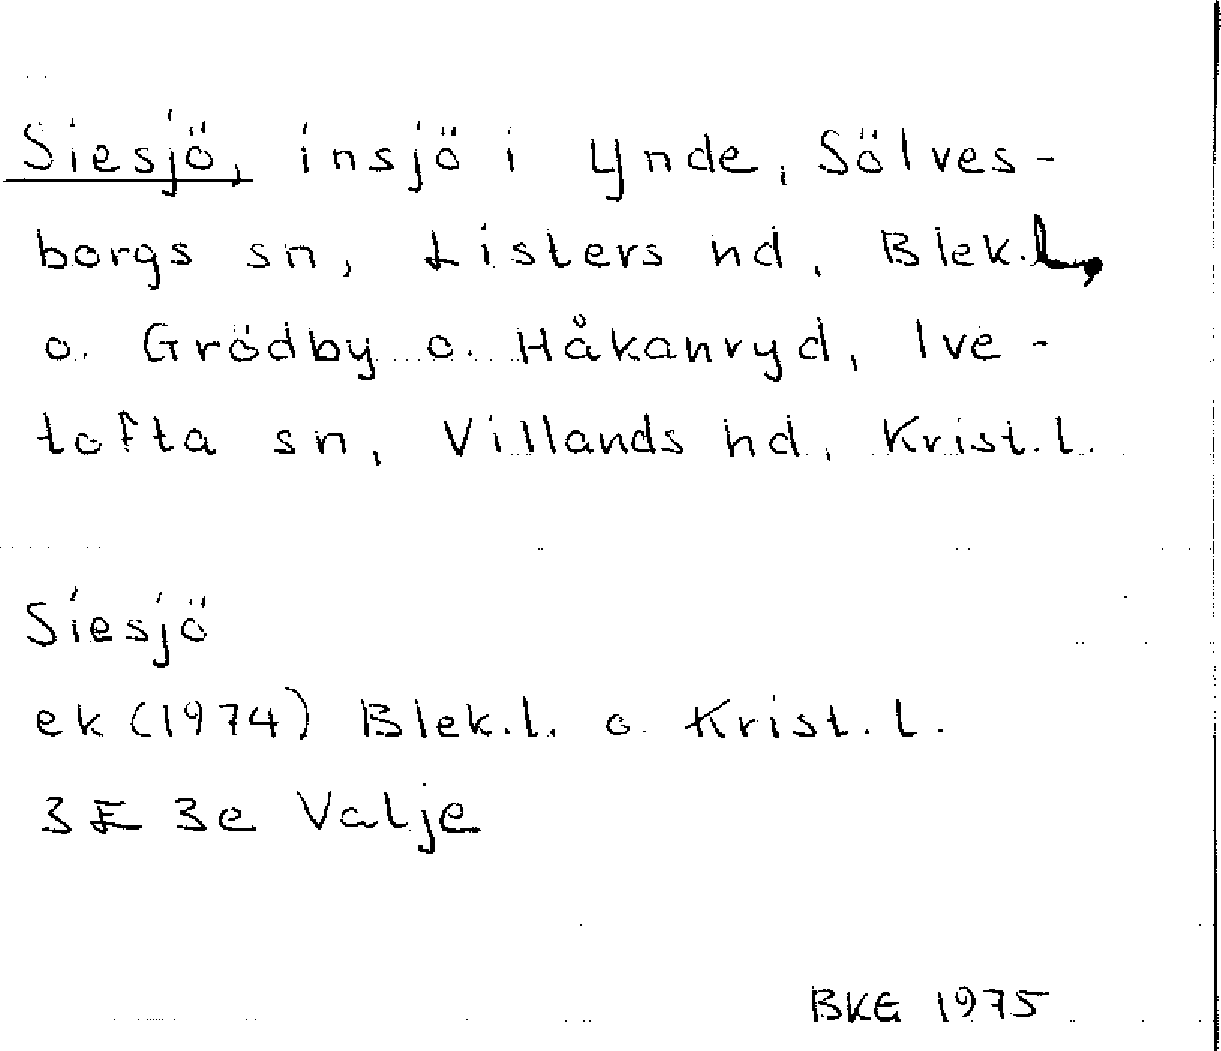 Siesjö, insjö i Ynde, Sölves-
borgs sn, Listers hd, Blek.l,
o. Grödby o. Håkanryd, Ive-
tofta sn, Villands hd, Krist.l.
Siesjö
ek (1974) Blek.l. o. Krist.l.
3E 3e Valje
BKE 1975